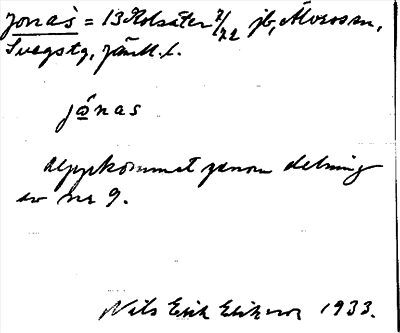 Jonas = 13 Kolsäter 7/72 jb, Älvros sn,
Svegs tg, Jämtl. l.
jǻnas
Uppkommet genom delning
av nr 9.
Nils Erik Eriksson 1933.